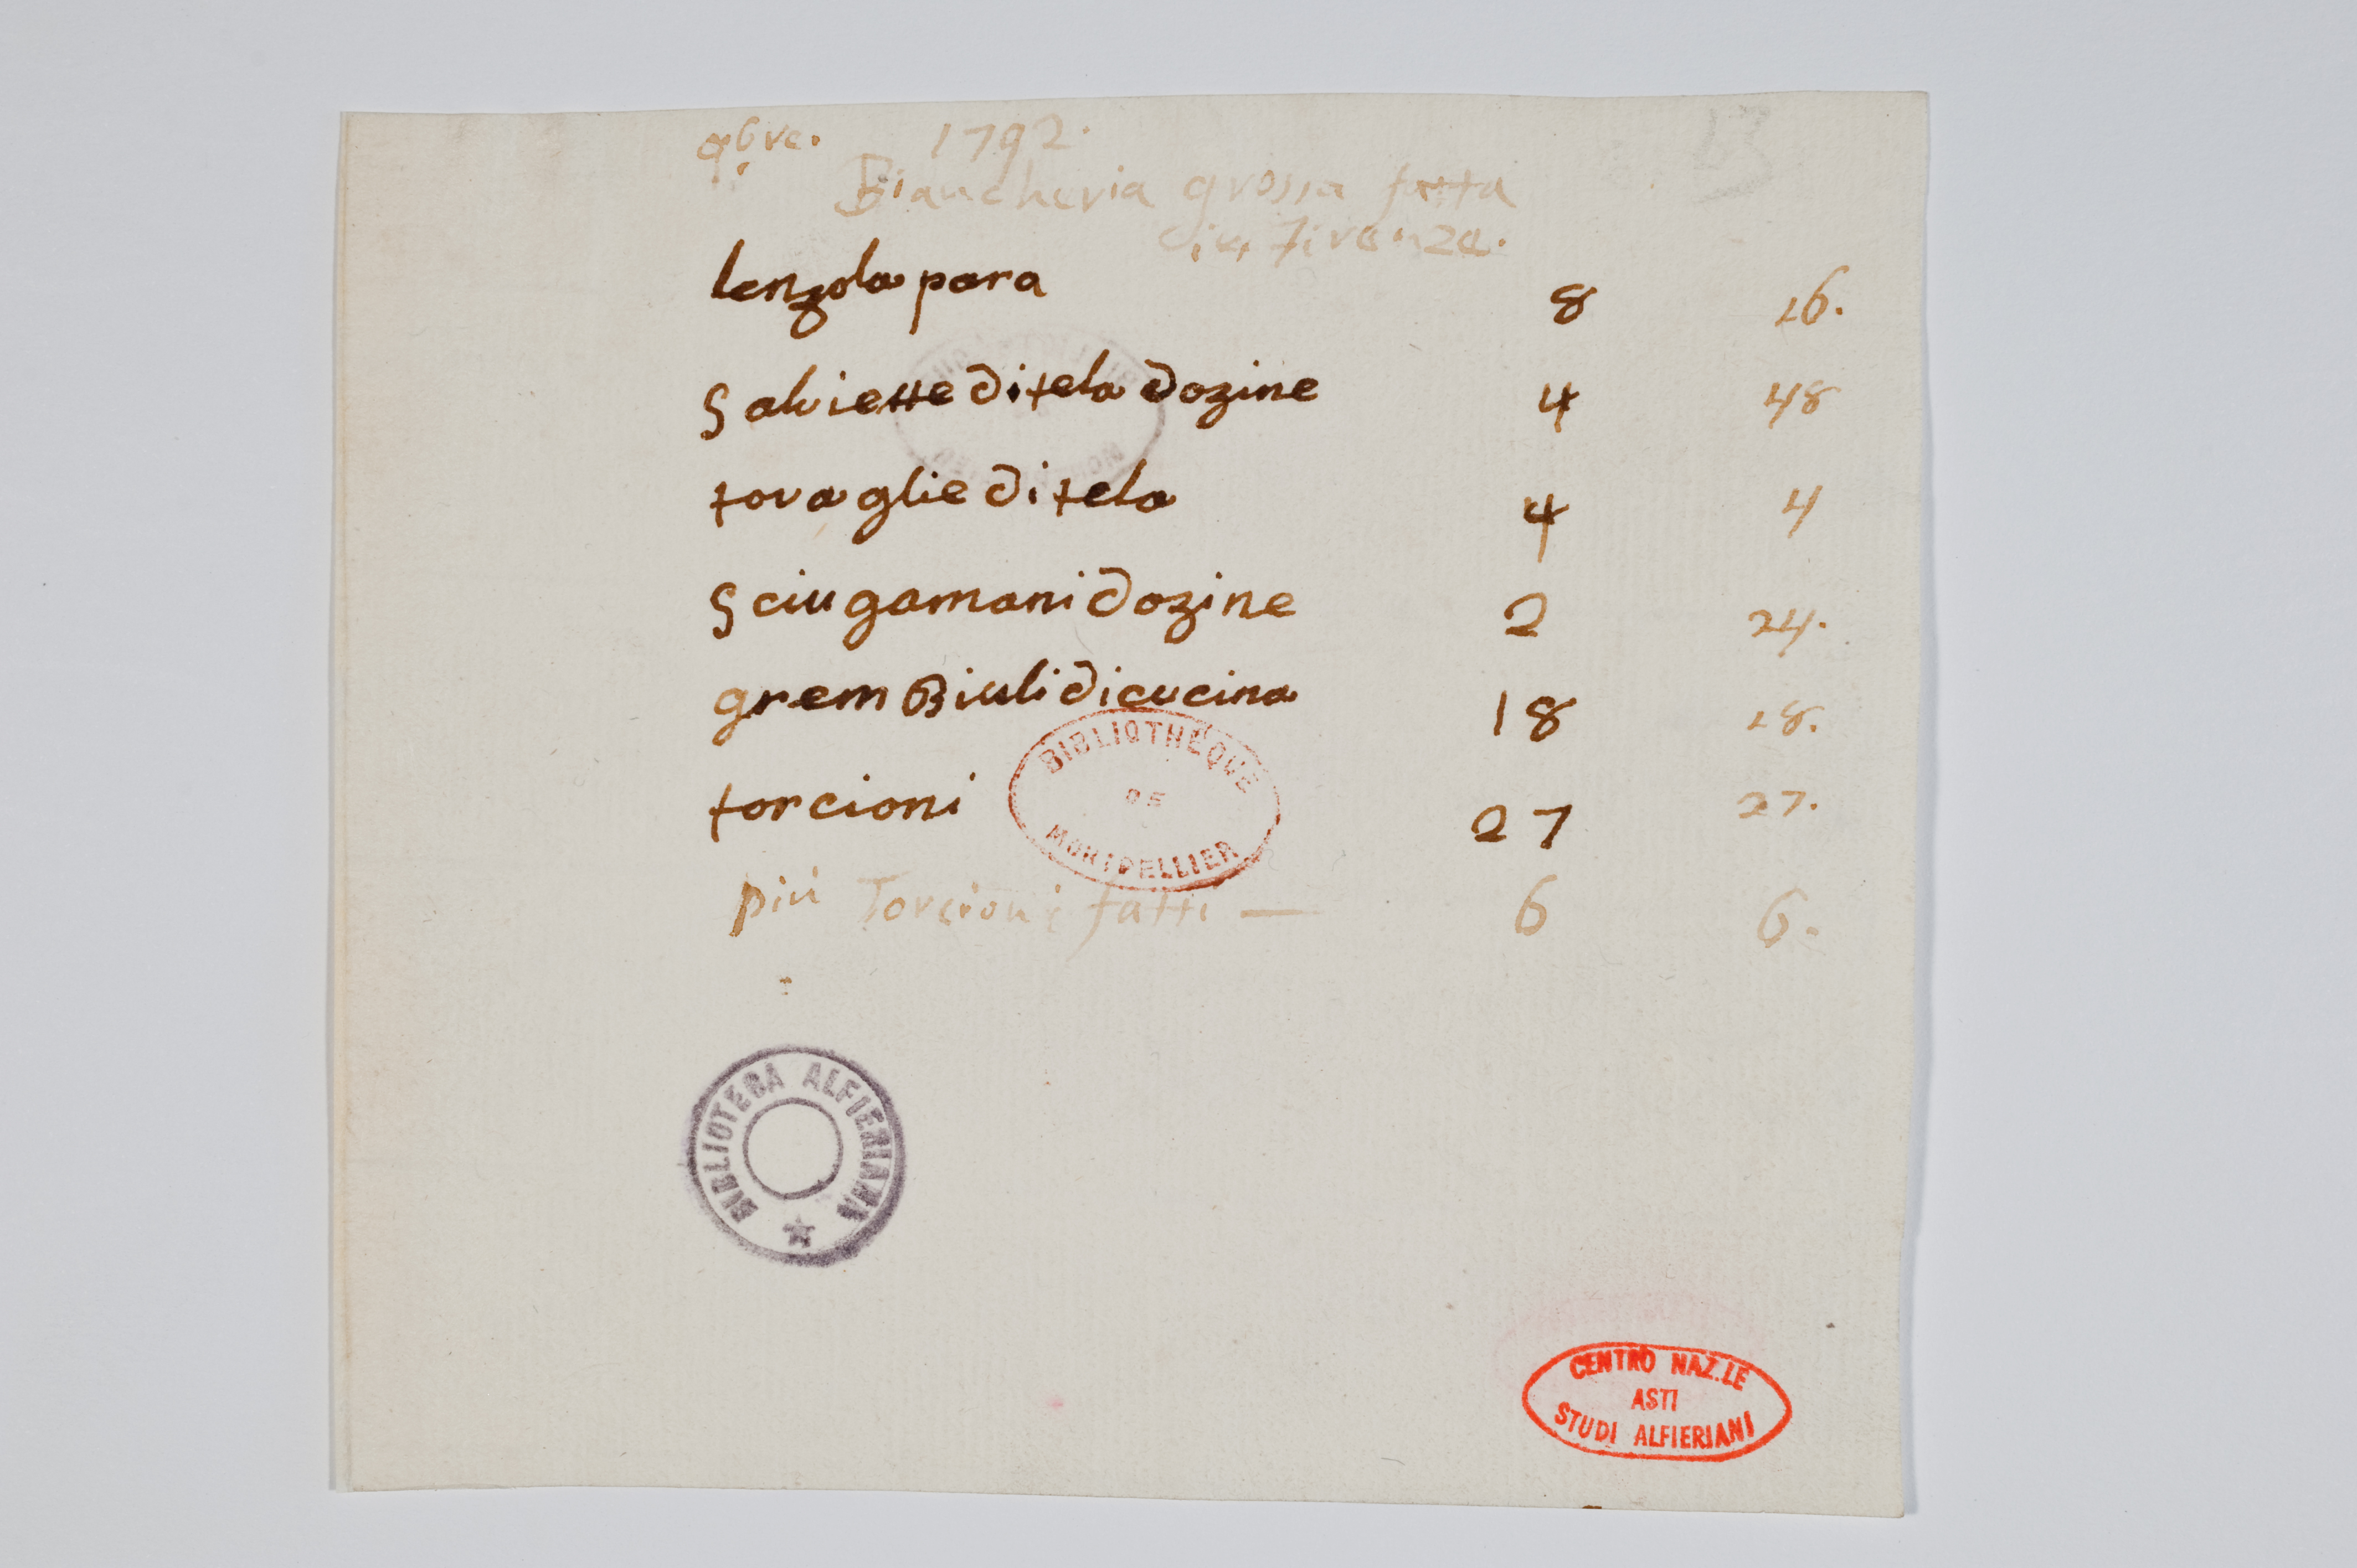 9bre. 1792.
Biancheria grossa fatta
in Firenze.
lenzola para 8 16.
Salviette di tela dozine 4 48
tovaglie di tela 4 4
Sciugamani dozine 2 24.
gremBiuli di cucina 18 18.
torcioni 27 27.
più Torcioni fatti — 6 6.
BIBLIOTHEQUE
DE
MONTPELLIER
BIBLIOTECA ALFIERIANA
CENTRO NAZ.LE
ASTI
STUDI ALFIERIANI